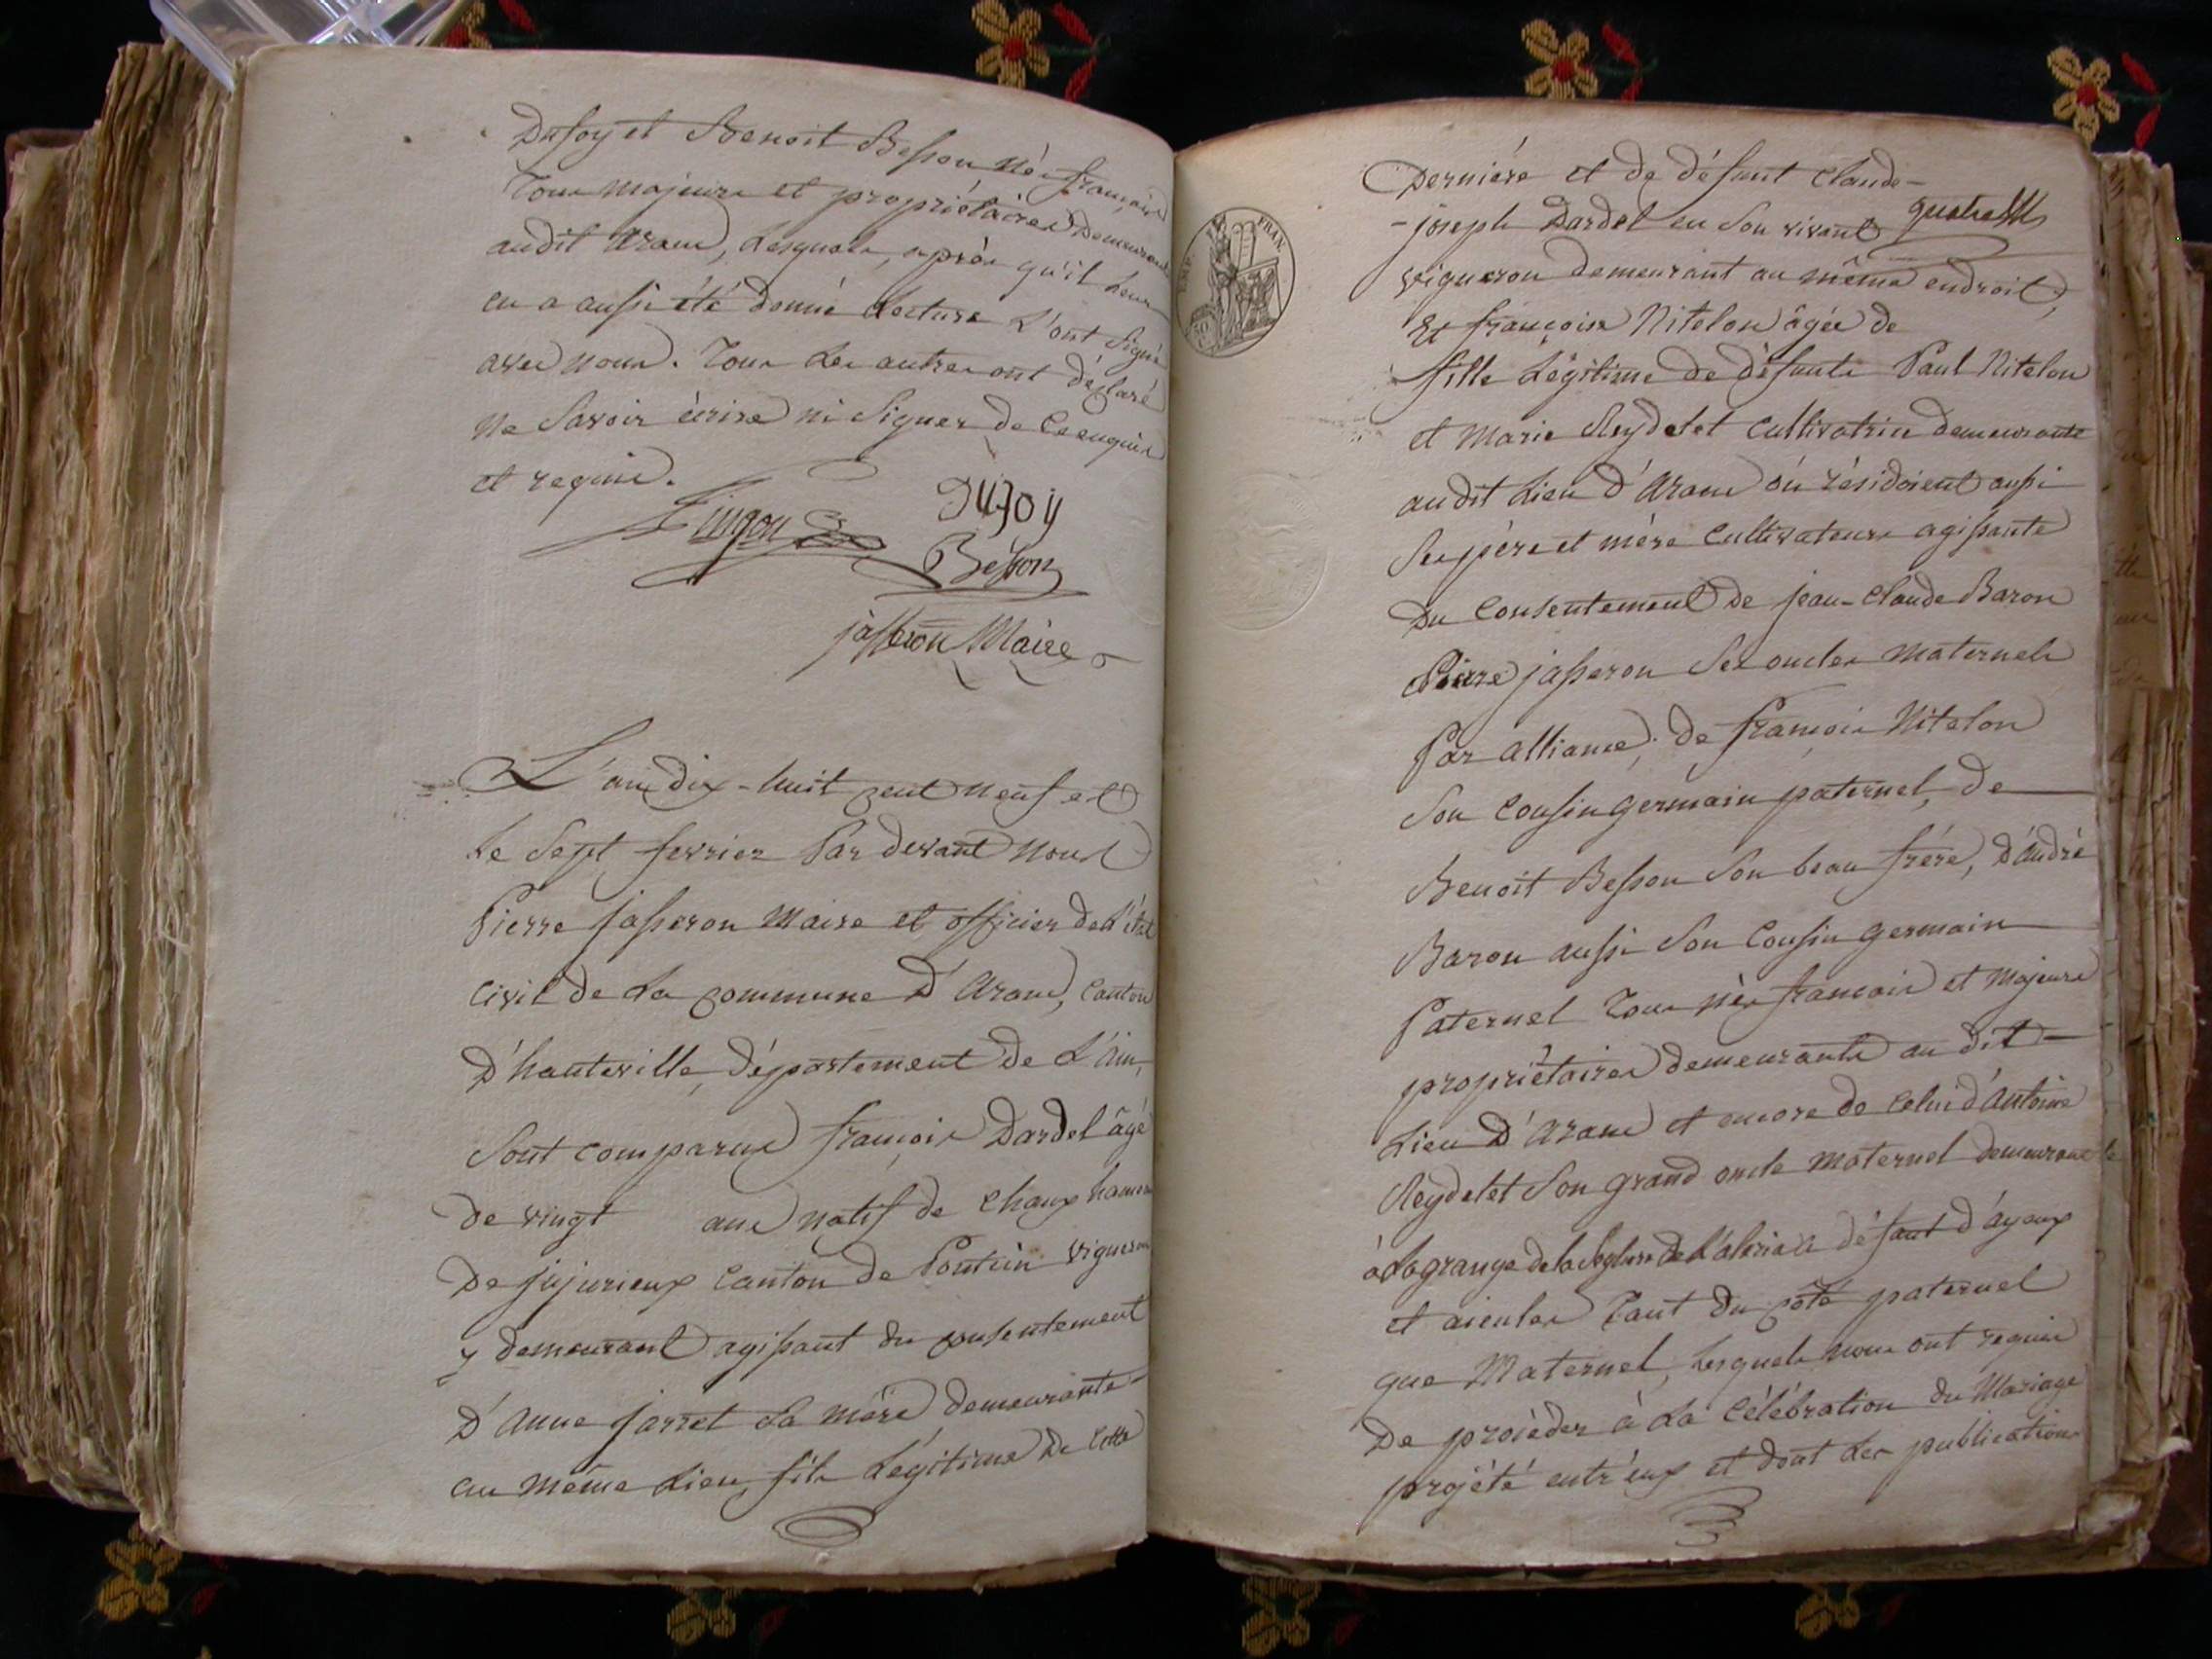 Dufoy et Benoit Besson nés français
Tous majeurs et propriétaires demeurant
audit Aranc, Lesquels, après qu'il Leur
en a aussi été donné Lecture L'ont signé
avec nous. Tous Les autres ont déclaré
ne Savoir écrire ni Signer de Ce enquis
et requis.
Dufoy
Besson
jasseron Maire
L'an dix-huit cent neuf et
Le Sept fevrier Par devant nous
Pierre jasseron Maire et officier de L'état
Civil de La commune D'Aranc, Canton
D'hauteville, département de L'Ain,
Sont comparus françois Dardel âgé
de vingt ans natif de Chaux hameau
De jujurieux Canton de Poncin vigneron
y demeurant agissant du consentement
D'Anne jarret Sa mère demeurante
au même Lieu, fils Légitime de Cette
Dernière et de défunt Claude-
-joseph Dardel en Son vivant
vigneron demeurant au même endroit,
Et françoise Nitelon âgée de
fille Légitime de défunts Paul Nitelon
et Marie Reydelet Cultivatrice demeurante
audit Lieu d'Aranc où résidoient aussi
Ses père et mère Cultivateurs agissante
Du Consentement de jean-Claude Baron
Pierre jasseron Ses oncles Maternels
Par alliance, de françois Nitelon
Son Cousin germain paternel, de
Benoit Besson Son beau frère, D'André
Baron aussi Son Cousin germain
Paternel Tous nés françois et Majeurs
propriétaires demeurants au dit
Lieu D'Aranc et encore de Celui d'Antoine
Reydelet Son grand oncle Maternel demeurant
à Lagrange de la défaut d'ayeux
et aieules Tant du coté paternel
que Maternel, Lesquels nous ont requis
De procéder à La Célébration du Mariage
projété entr'eux et dont Les publications
EMP. FRAN.